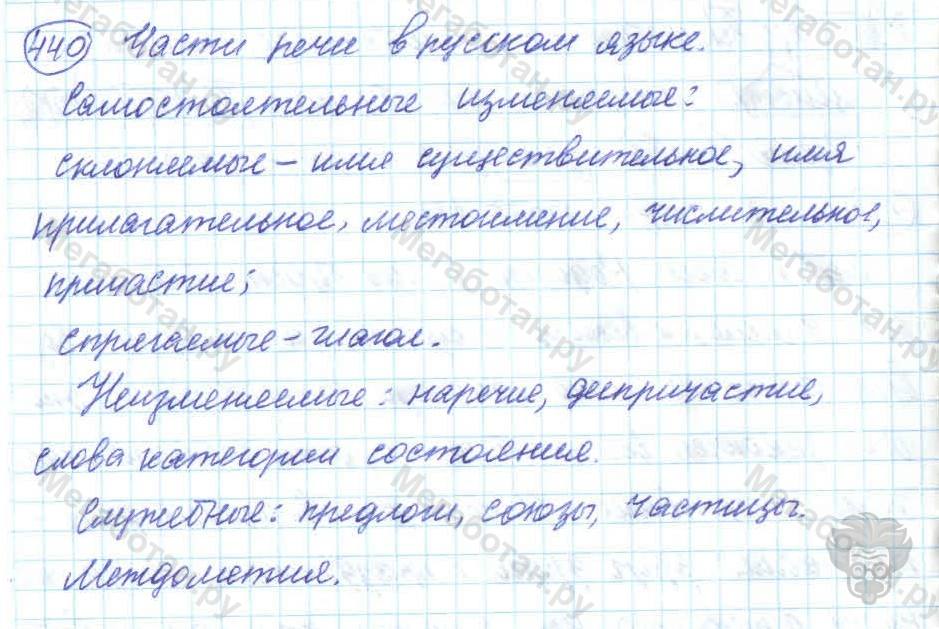 440 Части речи в русском языке.
Самостоятельные изменяемые:
склоняемые – имя существительное, имя
прилагательное, местоимение, числительное,
причастие;
спрягаемые – глагол.
Неизменяемые: наречие, деепричастие,
слова категории состояния.
Служебные: предлоги, союзы, частицы.
Междометия.
Мегаботан.ру